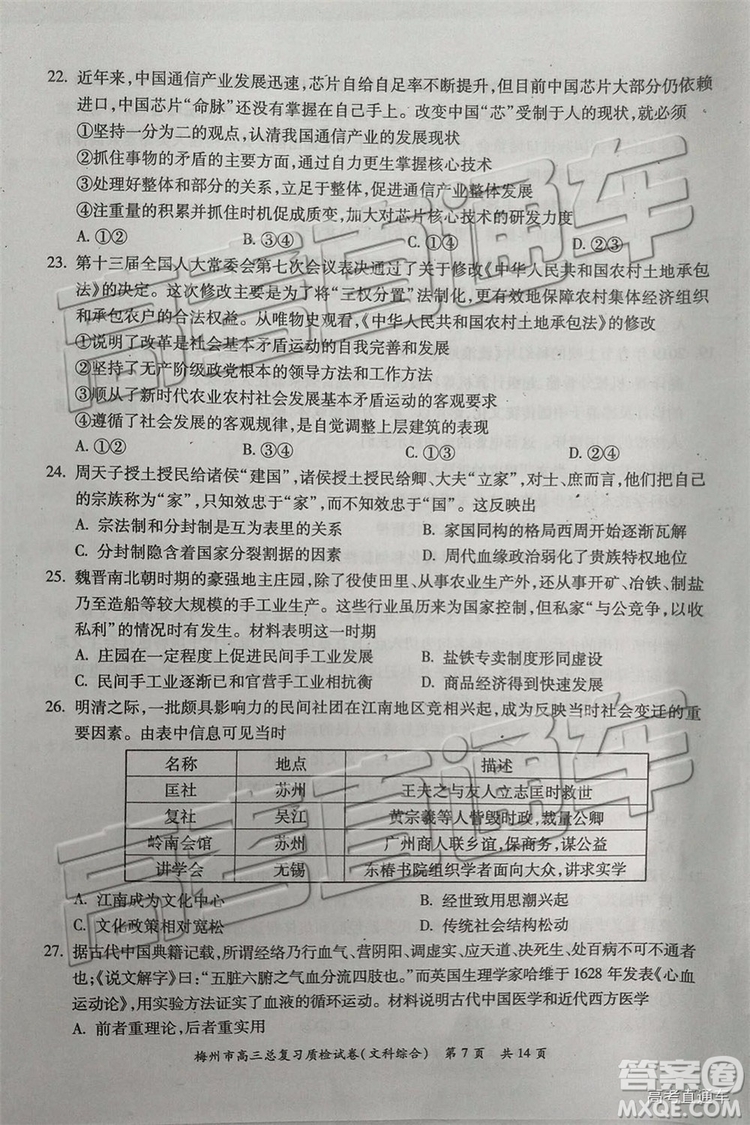 22. 近年来，中国通信产业发展迅速，芯片自给自足率不断提升，但目前中国芯片大部分仍依赖
进口，中国芯片“命脉”还没有掌握在自己手上。改变中国“芯”受制于人的现状，就必须
①坚持一分为二的观点，认清我国通信产业的发展现状
②抓住事物的矛盾的主要方面，通过自力更生掌握核心技术
③处理好整体和部分的关系，促进通信产业整体发展
④注重量的积累并抓住时机促成质变，加大对芯片核心技术的研发力度
A. ①② B. ③④ C. ①④ D. ②③
23. 第十三届全国人大常委会第七次会议表决通过了关于修改《中华人民共和国农村土地承包
法》的决定。这次修改主要是为了将“三权分置”法制化，更有效地保障农村集体经济组织
和承包农户的合法权益。从唯物史观看，《中华人民共和国农村土地承包法》的修改
①说明了改革是社会基本矛盾运动的自我完善和发展
②坚持了无产阶级政党根本的领导方法和工作方法
③顺从了新时代农业农村社会发展基本矛盾运动的客观要求
④遵循了社会发展的客观规律，是自觉调整上层建筑的表现
A. ①② B. ①③ C. ②④ D. ③④
24. 周天子授土授民给诸侯“建国”，诸侯授土授民给卿、大夫“立家”，对士、庶而言，他们把自己
的宗族称为“家”，只知效忠于“家”，而不知效忠于“国”。这反映出
A. 宗法制和分封制是互为表里的关系 B. 家国同构的格局西周开始逐渐瓦解
C. 分封制隐含着国家分裂割据的因素 D. 周代血缘政治弱化了贵族特权地位
25. 魏晋南北朝时期的豪强地主庄园，除了役使田里、从事农业生产外，还从事开矿、冶铁、制盐
乃至造船等较大规模的手工业生产。这些行业虽历来为国家控制，但私家“与公竞争，以收
私利”的情况时有发生。材料表明这一时期
A. 庄园在一定程度上促进民间手工业发展 B. 盐铁专卖制度形同虚设
C. 民间手工业逐渐已和官营手工业相抗衡 D. 商品经济发展迅速
26. 明清之际，一批颇具影响力的民间社团在江南地区竞相兴起，成为反映当时社会变迁的重
要因素。由表中信息可见当时
名称 地点 描述
匡社 苏州 王夫之与友人立志匡时救世
复社 吴江 黄宗羲等人訾毁时政，裁量公卿
岭南会馆 苏州 广州商人联乡谊，保商务，谋公益
讲学会 无锡 东椿书院组织学者面向大众，讲求实学
A. 江南成为文化中心 B. 经世致用思潮兴起
C. 文化政策相对宽松 D. 传统社会结构松动
27. 据古代中国典籍记载，所谓经络乃行血气、营阴阳、调虚实、应天道、决死生、处百病不可不通者
也；《说文解字》曰：“五脏六腑之气血分流四肢也。”而英国生理学家哈维于 1628 年发表《心血
运动论》，用实验方法证实了血液的循环运动。材料说明古代中国医学和近代西方医学
A. 前者重理论，后者重实用
梅州市高三总复习质检试卷(文科综合) 第 7 页 共 14 页
高考直通车
答案圈
高考直通车
MXQE.COM